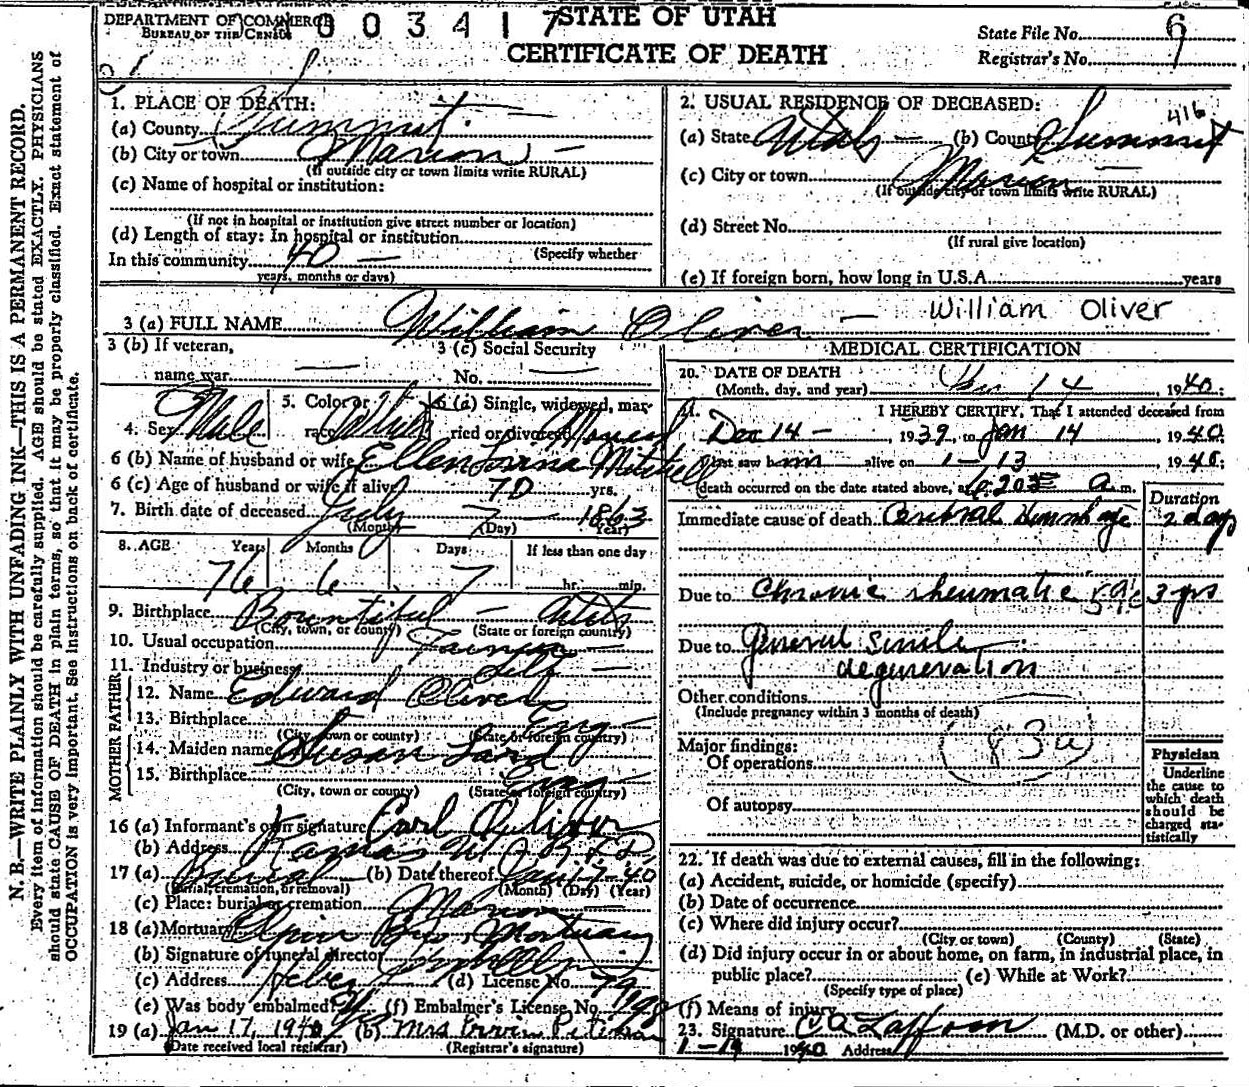 DEPARTMENT OF COMMERCE
BUREAU OF THE CENSUS
003417
STATE OF UTAH
CERTIFICATE OF DEATH
State File No. 6
Registrar's No.
N. B.—WRITE PLAINLY WITH UNFADING INK—THIS IS A PERMANENT RECORD.
Every item of information should be carefully supplied. AGE should be stated EXACTLY. PHYSICIANS
should state CAUSE OF DEATH in plain terms, so that it may be properly classified. Exact statement of
OCCUPATION is very important. See instructions on back of certificate.
1. PLACE OF DEATH:
(a) County Summit
(b) City or town Marion
(If outside city or town limits write RURAL)
(c) Name of hospital or institution:
(If not in hospital or institution give street number or location)
(d) Length of stay: In hospital or institution
(Specify whether
In this community 40 —
years, months or days)
2. USUAL RESIDENCE OF DECEASED:
416
(a) State Utah — (b) County Summit
(c) City or town Marion
(If outside city or town limits write RURAL)
(d) Street No.
(If rural give location)
(e) If foreign born, how long in U.S.A. years
3 (a) FULL NAME William Oliver — William Oliver
3 (b) If veteran,
name war —
3 (c) Social Security
No. —
4. Sex Male
5. Color or
race White
6 (a) Single, widowed, mar-
ried or divorced Married
6 (b) Name of husband or wife Ellen Mitchell
6 (c) Age of husband or wife if alive 70 yrs.
7. Birth date of deceased July 7 — 1863
(Month) (Day) Year)
8. AGE Years Months Days If less than one day
76 6 7 hr. min.
9. Birthplace Bountiful — Utah
(City, town, or county) (State or foreign country)
10. Usual occupation Farmer —
11. Industry or business Self —
FATHER
12. Name Edward Oliver
13. Birthplace Eng —
(City, town or county) (State or foreign country)
MOTHER
14. Maiden name Susan Lard
15. Birthplace Eng
(City, town or county) (State or foreign country)
16 (a) Informant's own signature Carl Oliver
(b) Address Kamas U R F D.
17 (a) Burial (b) Date thereof Jan 17 - 40
(Burial, cremation, or removal) (Month) (Day) (Year)
(c) Place: burial or cremation Marion
18 (a) Mortuary Olpin Bros Mortuary
(b) Signature of funeral director
(c) Address Heber (d) License No. 79
(e) Was body embalmed? (f) Embalmer's License No.
19 (a) Jan 17, 1940 (b) Mrs Ervin Peterson
(Date received local registrar) (Registrar's signature)
MEDICAL CERTIFICATION
20. DATE OF DEATH
(Month, day, and year) Jan 14, 1940;
21. I HEREBY CERTIFY, That I attended deceased from
Dec 14 —, 1939, to Jan 14, 1940
I last saw him alive on 1-13 1940;
death occurred on the date stated above, at a. m.
Duration
Immediate cause of death Cerebral Hemorrhage 2 days
Due to Chronic rheumatic 59c 3 yrs
Due to General senile
degeneration
Other conditions
(Include pregnancy within 3 months of death)
83a
Major findings:
Of operations
Of autopsy
Physician
Underline
the cause to
which death
should be
charged sta-
tistically
22. If death was due to external causes, fill in the following:
(a) Accident, suicide, or homicide (specify)
(b) Date of occurrence
(c) Where did injury occur?
(City or town) (County) (State)
(d) Did injury occur in or about home, on farm, in industrial place, in
public place? (e) While at Work?
(Specify type of place)
(f) Means of injury
23. Signature (M.D. or other)
1-19 1940 Address